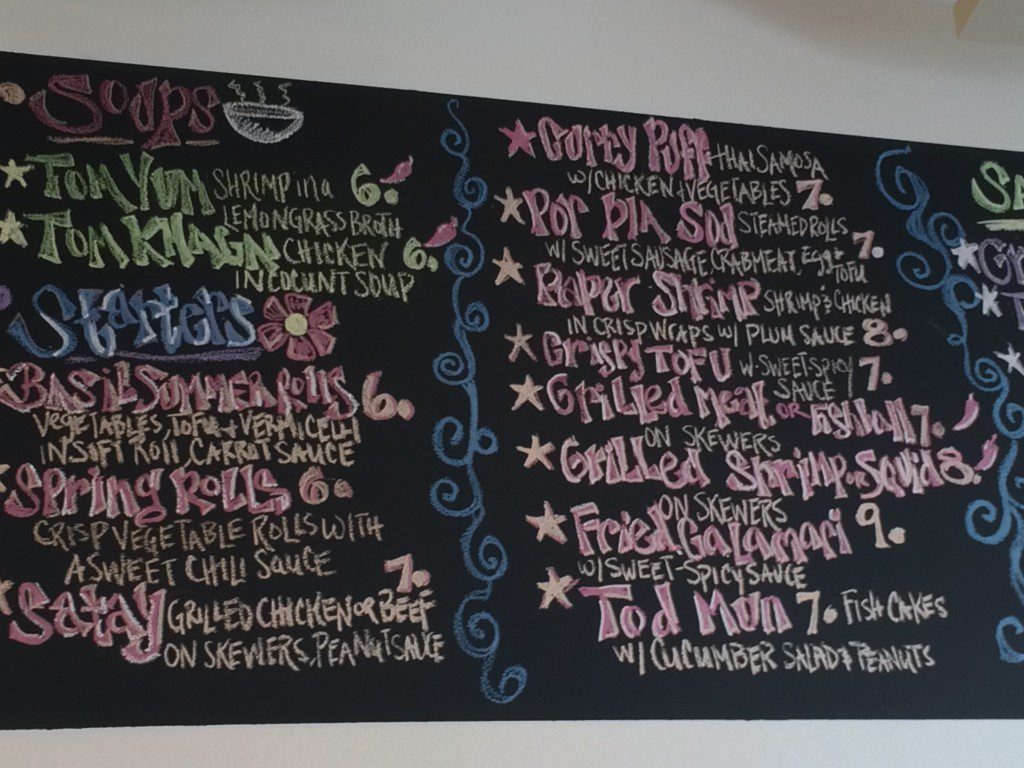 Soups
TOM YUM SHRIMP in a 6.
LEMONGRASS BROTH
TOM KHAGN CHICKEN 6.
IN COCUNT SOUP
Starters
BASIL SUMMER ROLLS 6.
VEGETABLES, TOFU + VERMICELLI
IN SOFT ROLL, CARROT SAUCE
Spring ROLLS 6.
CRISP VEGETABLE ROLLS WITH
A SWEET CHILI SAUCE
7.
Satay GRILLED CHICKEN OR BEEF
ON SKEWERS, PEANUT SAUCE
Curry Puff THAI SAMOSA
W/ CHICKEN + VEGETABLES 7.
POR PIA SOD STEAMED ROLLS
W/ SWEET SAUSAGE, CRABMEAT, Egg + TOFU 7.
Paper Shrimp SHRIMP & CHICKEN
IN CRISP WRAPS W/ PLUM SAUCE 8.
Crispy TOFU W. SWEET-SPICY SAUCE 7.
Grilled meat OR Fishball 7.
ON SKEWERS
Grilled Shrimp OR Squid 8.
ON SKEWERS
Fried Calamari 9.
W/ SWEET-SPICY SAUCE
Tod Mun 7. FISH CAKES
W/ CUCUMBER SALAD & PEANUTS